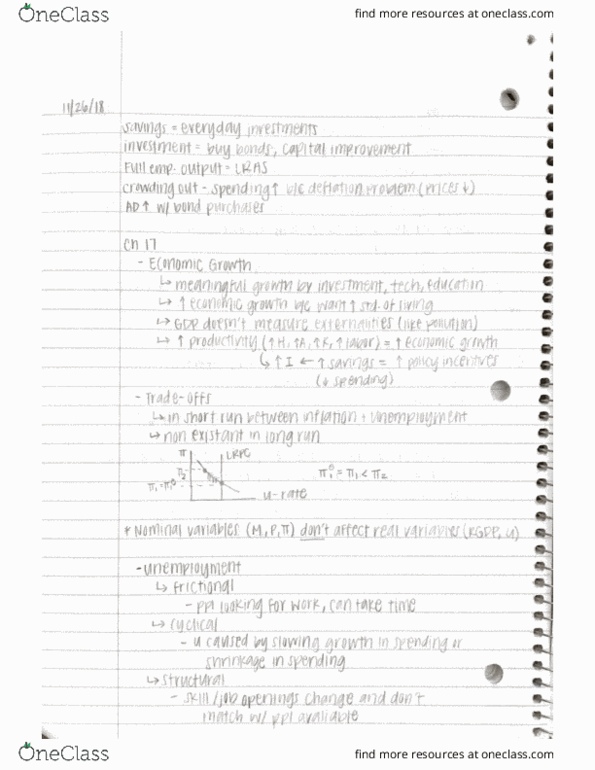 OneClass
find more resources at oneclass.com
11/26/18
savings = everyday investments
investment = buy bonds, capital improvement
Full emp. output = LRAS
crowding out - spending ↑ b/c deflation problem (prices ↓)
AD ↑ w/ bond purchases
Ch 17
- Economic Growth
↳ meaningful growth by investment, tech, education
↳ ↑ economic growth b/c want ↑ std. of living
↳ GDP doesn't measure externalities (like pollution)
↳ ↑ productivity (↑H, ↑A, ↑K, ↑labor) = ↑ economic growth
↳ ↑ I ← ↑ savings = ↑ policy incentives
(↓ spending)
- Trade-offs
↳ in short run between inflation + unemployment
↳ non existant in long run
π LRPC
π₂
π₁ = π₁ᵉ
π₁ᵉ = π₁ < π₂
u-rate
* Nominal variables (M, P, π) don't affect real variables (RGDP, u)
- unemployment
↳ frictional
- ppl looking for work, can take time
↳ cyclical
- u caused by slowing growth in spending or
shrinkage in spending
↳ structural
- skill/job openings change and don't
match w/ ppl available
OneClass
find more resources at oneclass.com